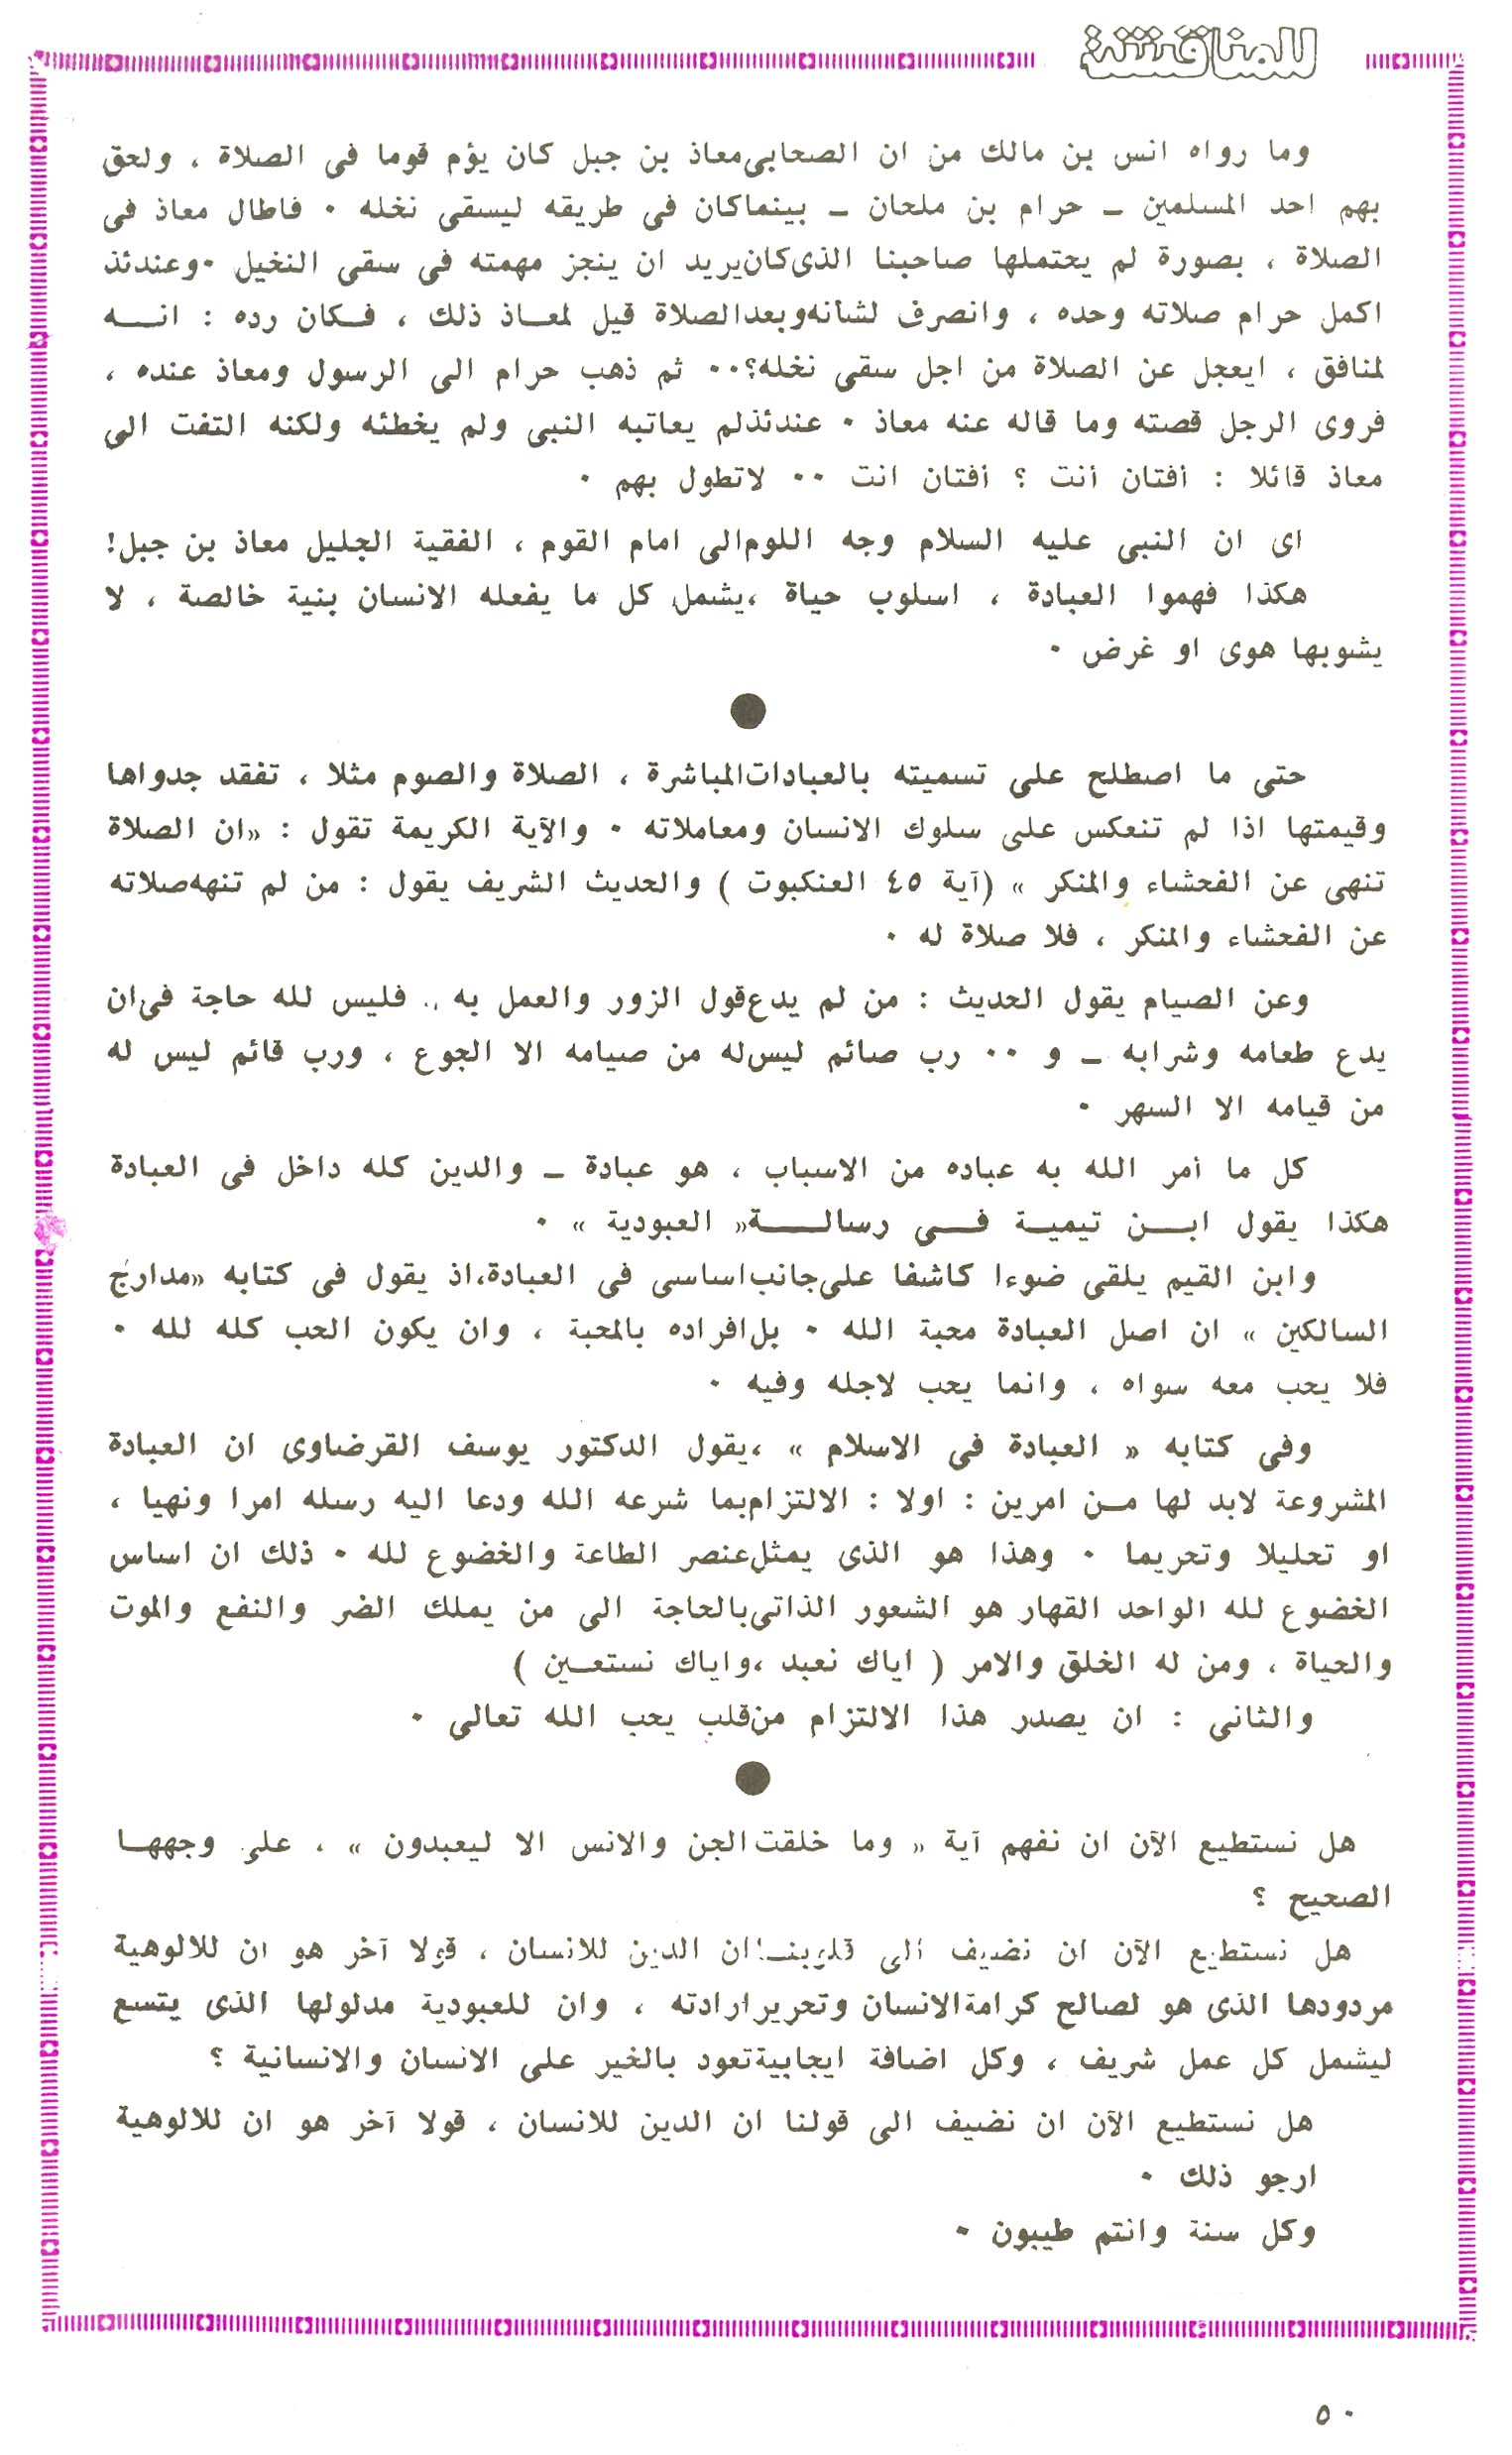 للمناقشة
وما رواه انس بن مالك من ان الصحابى معاذ بن جبل كان يؤم قوما فى الصلاة ، ولحق
بهم احد المسلمين ــ حرام بن ملحان ــ بينما كان فى طريقه ليسقى نخله ٠ فاطال معاذ فى
الصلاة ، بصورة لم يحتملها صاحبنا الذى كان يريد ان ينجز مهمته فى سقى النخيل ٠ وعندئذ
اكمل حرام صلاته وحده ، وانصرف لشانه وبعد الصلاة قيل لمعاذ ذلك ، فكان رده : انه
لمنافق ، ايعجل عن الصلاة من اجل سقى نخله؟٠٠ ثم ذهب حرام الى الرسول ومعاذ عنده ،
فروى الرجل قصته وما قاله عنه معاذ ٠ عندئذ لم يعاتبه النبى ولم يخطئه ولكنه التفت الى
معاذ قائلا : أفتان أنت ؟ أفتان انت ٠٠ لاتطول بهم ٠
اى ان النبى عليه السلام وجه اللوم الى امام القوم ، الفقية الجليل معاذ بن جبل!
هكذا فهموا العبادة ، اسلوب حياة ، يشمل كل ما يفعله الانسان بنية خالصة ، لا
يشوبها هوى او غرض ٠
●
حتى ما اصطلح على تسميته بالعبادات المباشرة ، الصلاة والصوم مثلا ، تفقد جدواها
وقيمتها اذا لم تنعكس على سلوك الانسان ومعاملاته ٠ والآية الكريمة تقول : «ان الصلاة
تنهى عن الفحشاء والمنكر » (آية ٤٥ العنكبوت ) والحديث الشريف يقول : من لم تنهه صلاته
عن الفحشاء والمنكر ، فلا صلاة له ٠
وعن الصيام يقول الحديث : من لم يدع قول الزور والعمل به .. فليس لله حاجة فى ان
يدع طعامه وشرابه ــ و ٠٠ رب صائم ليس له من صيامه الا الجوع ، ورب قائم ليس له
من قيامه الا السهر ٠
كل ما أمر الله به عباده من الاسباب ، هو عبادة ــ والدين كله داخل فى العبادة
هكذا يقول ابن تيمية فى رسالة « العبودية » ٠
وابن القيم يلقى ضوءا كاشفا على جانب اساسى فى العبادة ، اذ يقول فى كتابه «مدارج
السالكين » ان اصل العبادة محبة الله ٠ بل افراده بالمحبة ، وان يكون الحب كله لله ٠
فلا يحب معه سواه ، وانما يحب لاجله وفيه ٠
وفى كتابه « العبادة فى الاسلام » ، يقول الدكتور يوسف القرضاوى ان العبادة
المشروعة لابد لها من امرين : اولا : الالتزام بما شرعه الله ودعا اليه رسله امرا ونهيا ،
او تحليلا وتحريما ٠ وهذا هو الذى يمثل عنصر الطاعة والخضوع لله ٠ ذلك ان اساس
الخضوع لله الواحد القهار هو الشعور الذاتى بالحاجة الى من يملك الضر والنفع والموت
والحياة ، ومن له الخلق والامر ( اياك نعبد ، واياك نستعين )
والثانى : ان يصدر هذا الالتزام من قلب يحب الله تعالى ٠
●
هل نستطيع الآن ان نفهم آية « وما خلقت الجن والانس الا ليعبدون » ، على وجهها
الصحيح ؟
هل نستطيع الآن ان نضيف الى قلوبنا ان الدين للانسان ، قولا آخر هو ان للالوهية
مردودها الذى هو لصالح كرامة الانسان وتحرير ارادته ، وان للعبودية مدلولها الذى يتسع
ليشمل كل عمل شريف ، وكل اضافة ايجابية تعود بالخير على الانسان والانسانية ؟
هل نستطيع الآن ان نضيف الى قولنا ان الدين للانسان ، قولا آخر هو ان للالوهية
ارجو ذلك ٠
وكل سنة وانتم طيبون ٠
٥٠